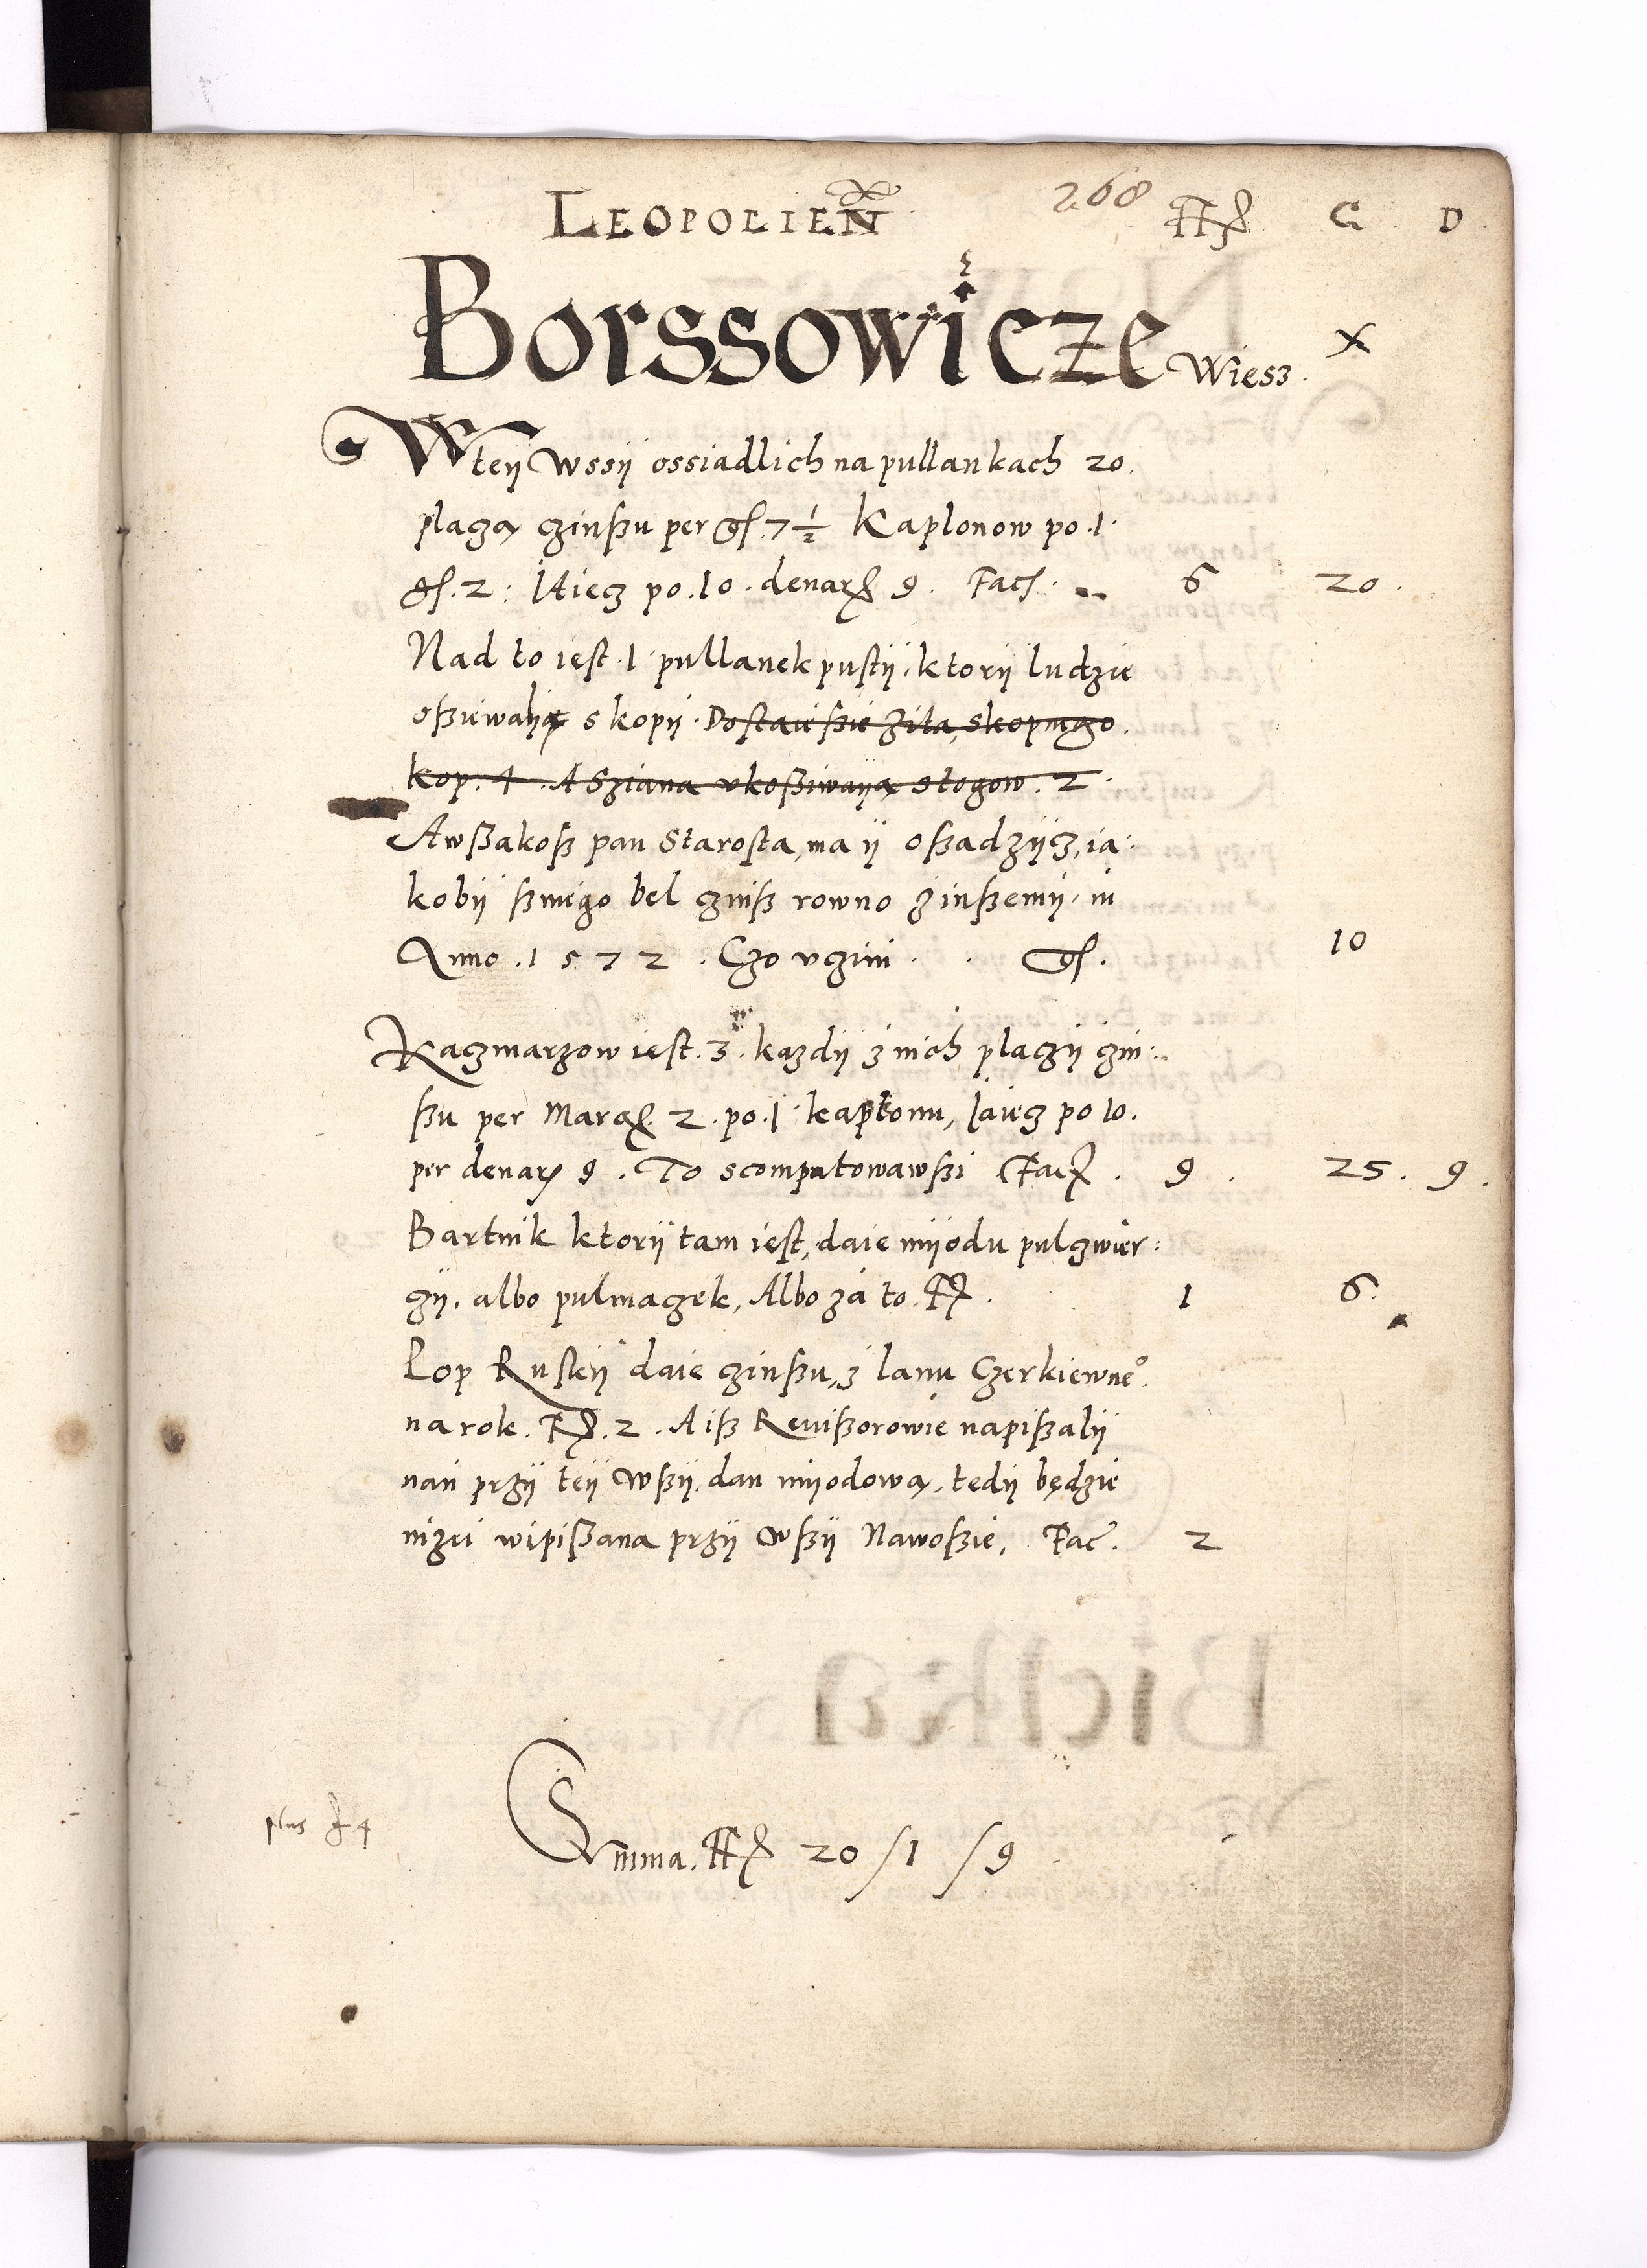 LEOPOLIEN 268 G D.
Borssowicze Wiesz. X
W teÿ Wssÿ ossiadlich na pullankach 20.
placzą czinßu per gſ. 7 1/2 Kaplonow po .1.
gſ. 2. Iaiecz po .10. denar 9. Facſ. 6 20.
Nad to iest .1. pullanek pustÿ, ktorÿ ludzie
oßiewaÿą s kopÿ. Dostaießie Zita, skopnego
kop. 4. A Sziana vkoßiwaÿą stogow. 2.
Awßakoß pan Starosta, ma ÿ oßadzÿcz, ia:
kobÿ ßniego bel czinß rowno zinßemÿ, in
Anno .1572. Czo vczini. gſ. 10
Kaczmarzow iest .3. kazdÿ z nich placzÿ czin:
ßu per Marc. 2. po .1. kapłonu, Iaiecz po 10.
per denar 9. To scomputowawßi Fac. 9. 25. 9.
Bartnik ktorÿ tam iest, daie mÿodu pulczwier:
czÿ, albo pulmaczek, Albo zá to. 1 6.
Pop Ruskÿ daie czinßu, z lanu Czerkiewneº
na rok. 2. A iß Reuißorowie napißalÿ
nań przÿ teÿ Wßÿ, dan mÿodową, tedÿ będzie
nizei wipißana przÿ Wßÿ Nawoßie, Fac. 2
plus 4
Summa. 20 / 1 / 9